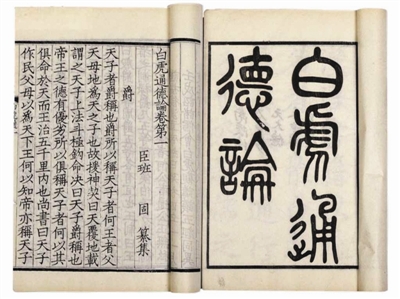 白虎通
德論
白虎通德論卷第一
臣班 固 纂集
爵
天子者爵稱也爵所以稱天子者何王者父
天母地為天之子也故援神契曰天覆地載
謂之天子上法斗極鈎命決曰天子爵稱也
帝王之德有優劣所以俱稱天子者何以其
俱命於天而王治五千里內也尚書曰天子
作民父母以為天下王何以知帝亦稱天子